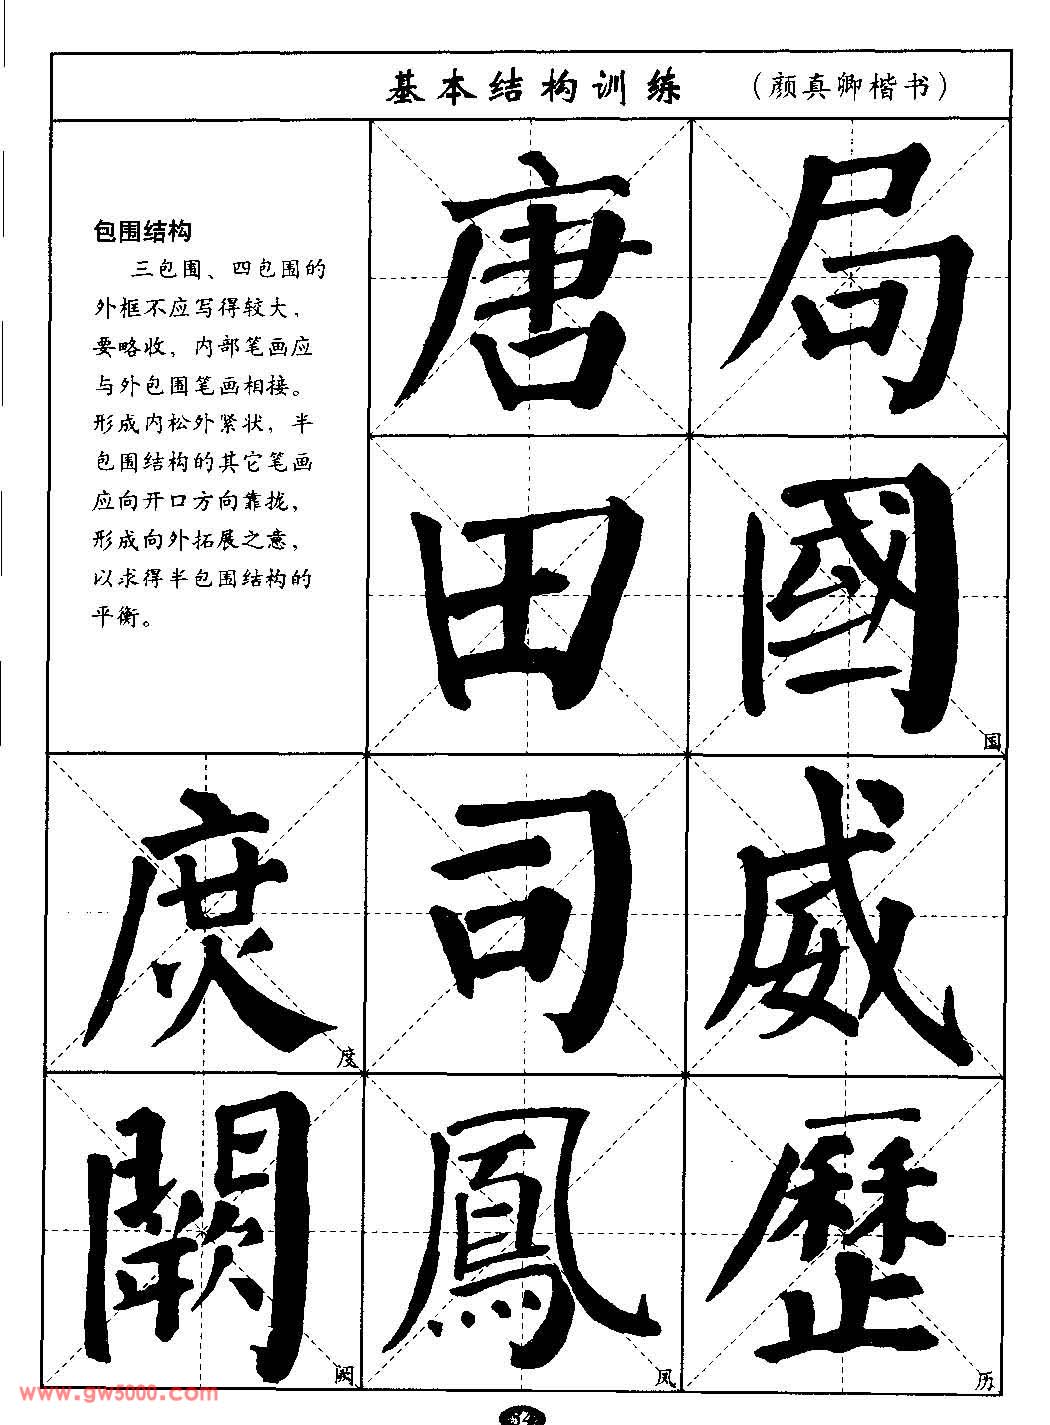 基本结构训练 (颜真卿楷书)
包围结构
三包围、四包围的
外框不应写得较大，
要略收，内部笔画应
与外包围笔画相接。
形成内松外紧状，半
包围结构的其它笔画
应向开口方向靠拢，
形成向外拓展之意，
以求得半包围结构的
平衡。
唐 局
田 國 国
度 度 司 威
闕 阙 鳳 凤 歷 历
www.gw5000.com